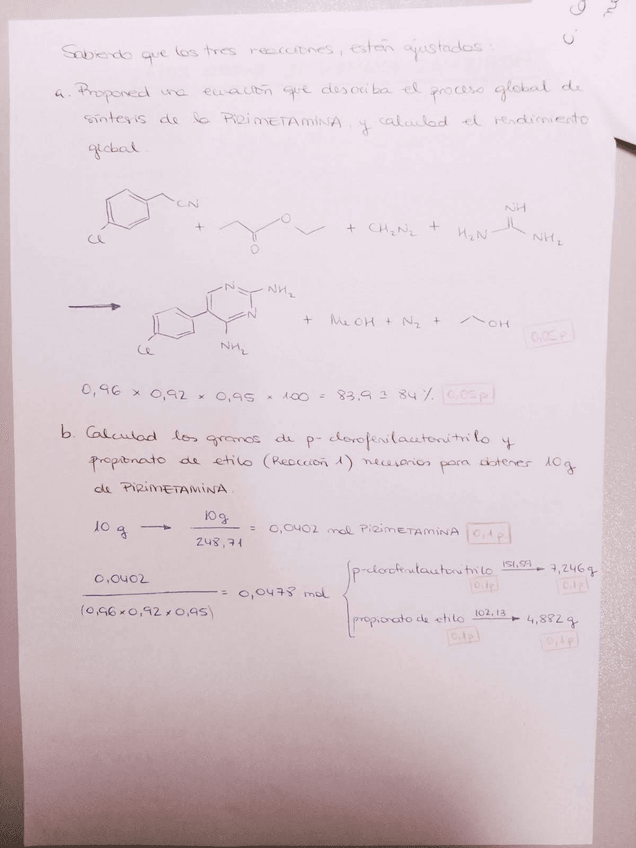 Sabiendo que las tres reacciones, están ajustadas:
a. Proponed una ecuación que describa el proceso global de
síntesis de la PIRIMETAMINA y calculad el rendimiento
global.
CN
Cl
+
O
O
+ CH2N2 +
NH
H2N
NH2
N
NH2
N
NH2
Cl
+ MeOH + N2 +
OH
0,05p
0,96 x 0,92 x 0,95 x 100 = 83,9 ≃ 84 %. 0,05p
b. Calculad los gramos de p-clorofenilacetonitrilo y
propionato de etilo (Reacción 1) necesarios para obtener 10g
de PIRIMETAMINA.
10 g → 10g / 248,71 = 0,0402 mol PIRIMETAMINA 0,1p
0,0402 / (0,96x0,92x0,95) = 0,0478 mol
p-clorofenilacetonitrilo 151,59 → 7,246g
0,1p 0,1p
propionato de etilo 102,13 → 4,882 g
0,1p 0,1p